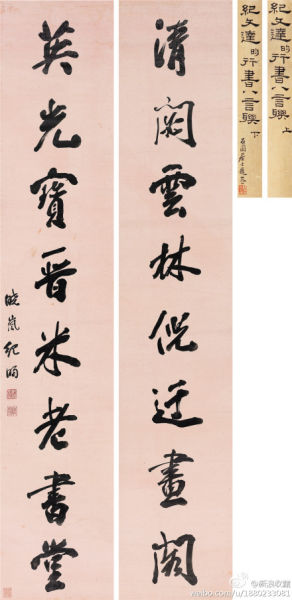 紀文達的行書八言聯 上
紀文達的行書八言聯 下
清閟雲林倪迂畫閣
英光寶晉米老書堂
曉嵐紀昀
@新浪收藏
weibo.com/u/1880233081